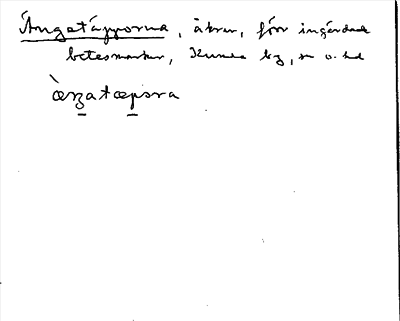 Ängatäpporna, åkrar, förr ingärdade
betesmarker, Kumla by, sn o. hd
ὰŋatæpσra